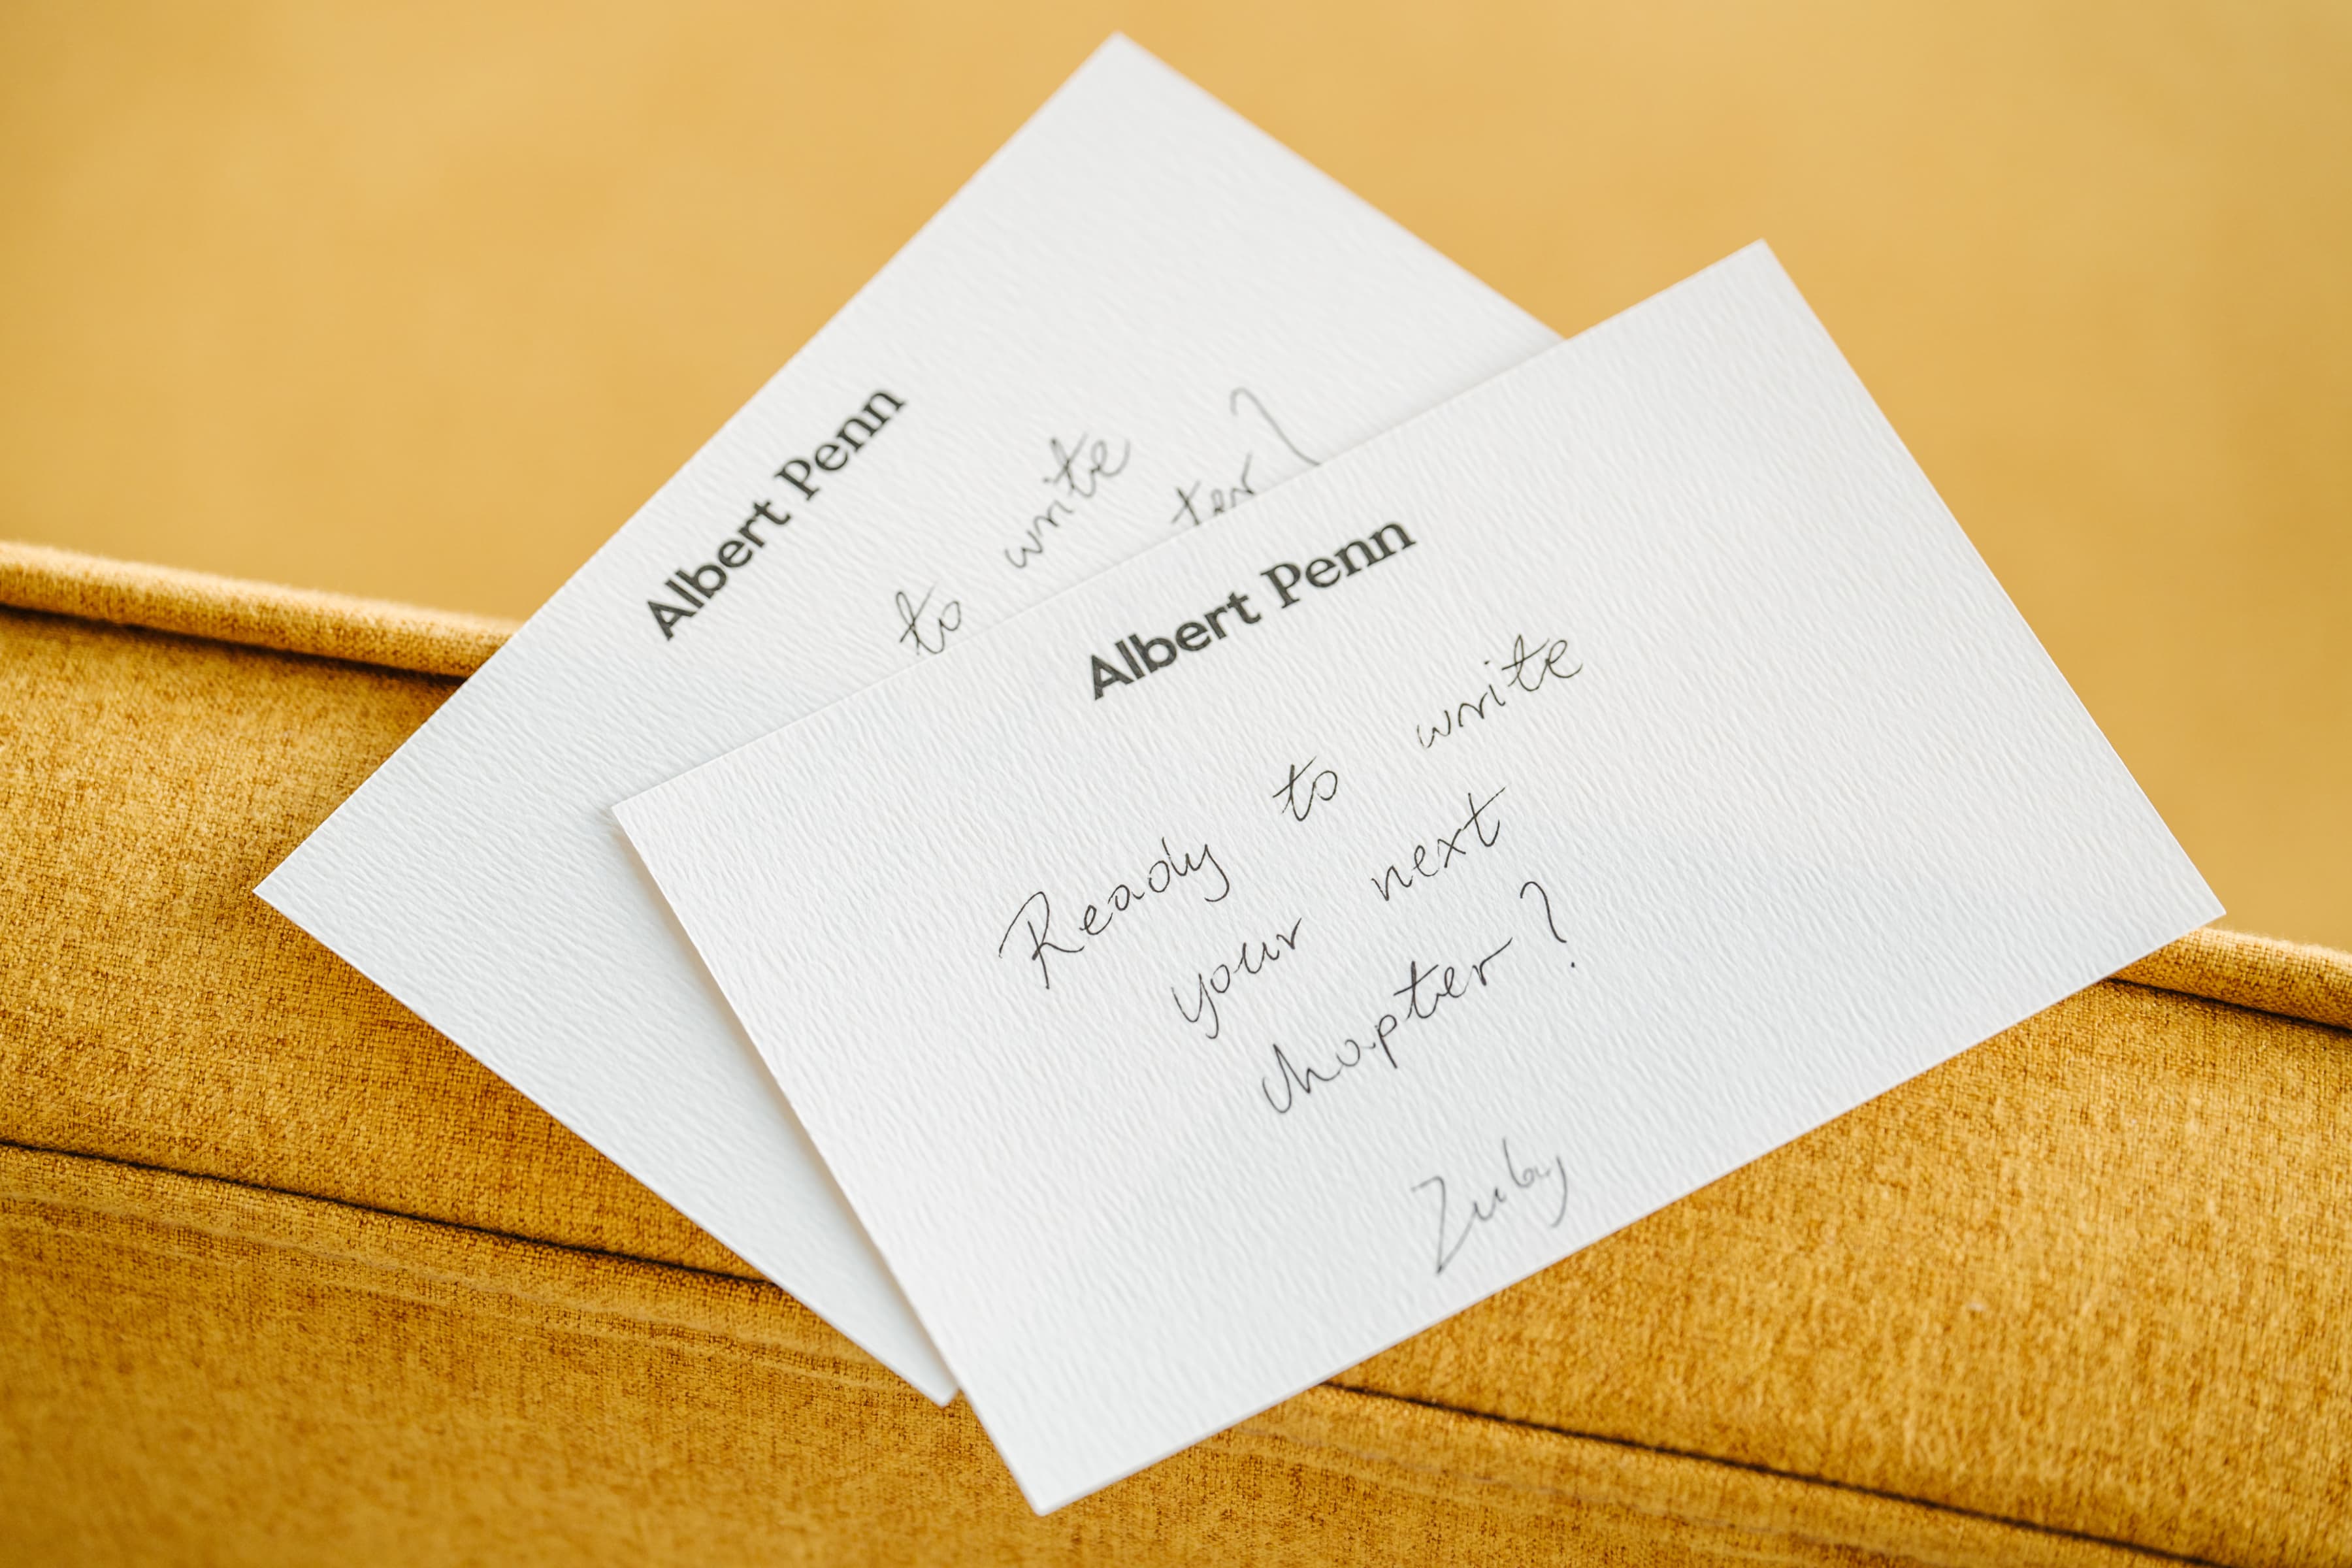 Albert Penn
to write
ter?
Albert Penn
Ready to write
your next
chapter?
Zuby